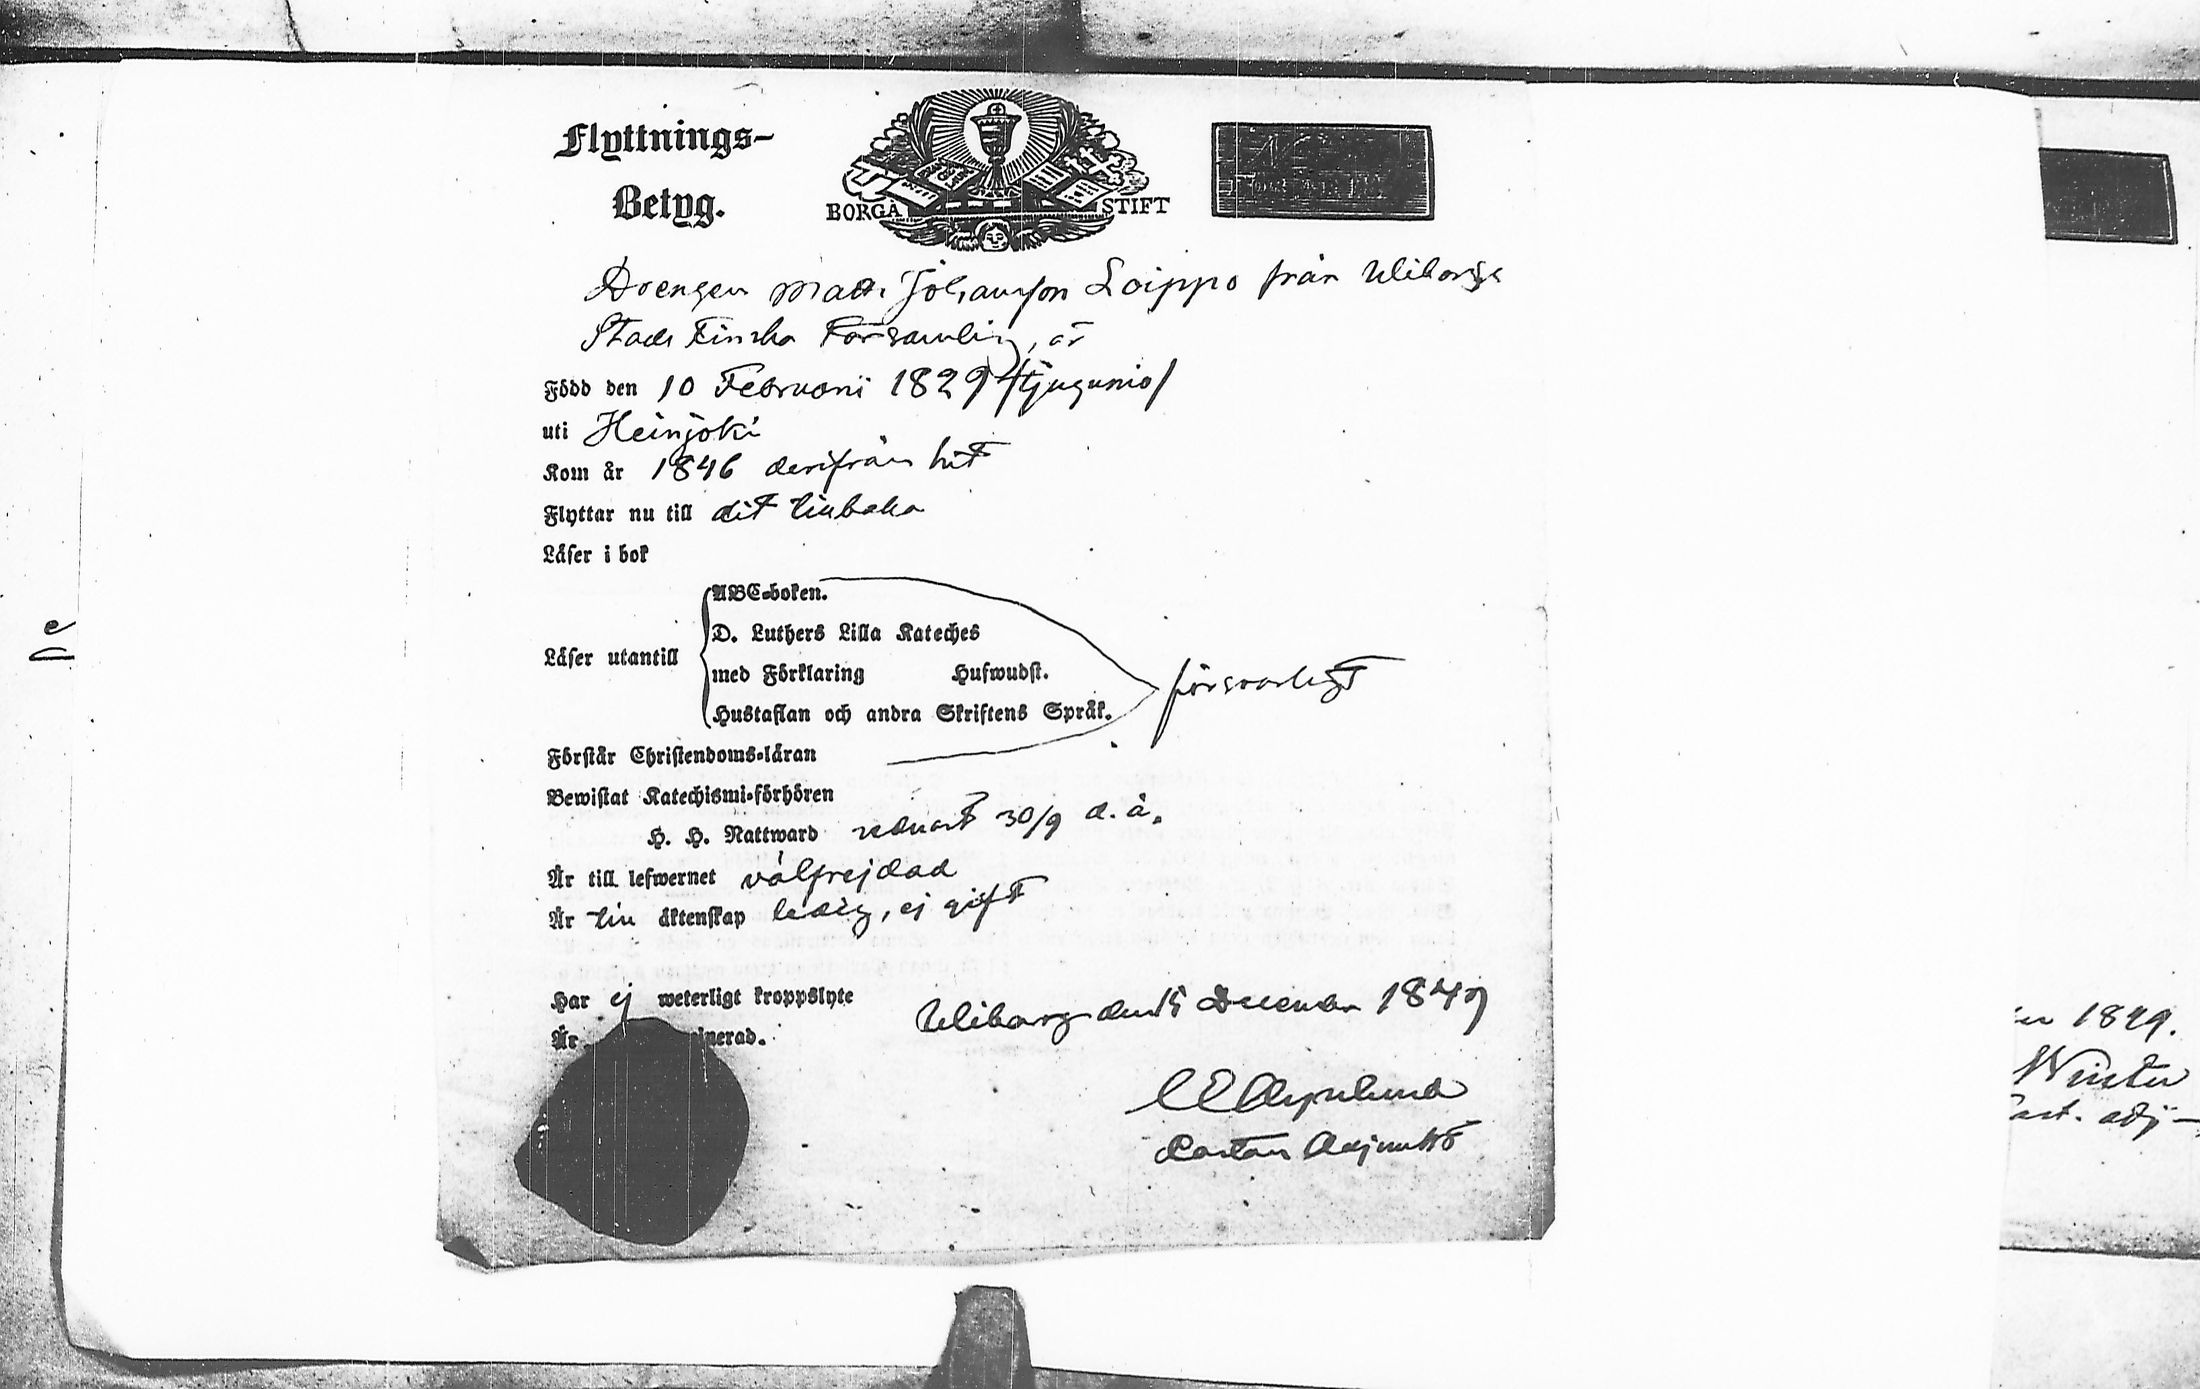 Flyttnings-
Betyg.
BORGÅ STIFT
Drengen Matts Johansson Loippo från Wiborgs
Stads Finska Församling, är
Född den 10 Februarii 1829 /tjugunio/
uti Heinjoki
Kom år 1846 derifrån hit
Flyttar nu till dit tillbaka
Läser i bok
ABC-boken.
D. Luthers Lilla Kateches
Läser utantill
med Förklaring Hufwudst.
försvarligt
Hustaflan och andra Skriftens Språk.
Förstår Christendoms-läran
Bewistat Katechismi-förhören
H. H. Nattward sednast 30/9 d. å.
Är till lefwernet välfrejdad
Är till äktenskap ledig, ej gift
Har ej weterligt kroppslyte
Wiborg den 15 December 1849
Är
Pastors Adjunkt
1849.
Winter
adj